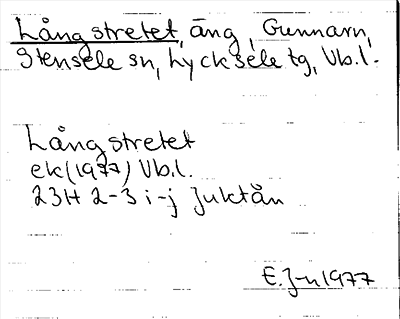 Långstretet, äng, Gunnarn,
Stensele sn, Lycksele tg, Vb.l.
Långstretet
ek (1977) Vb.l.
23H 2-3 i-j Juktån
E.J-n 1977